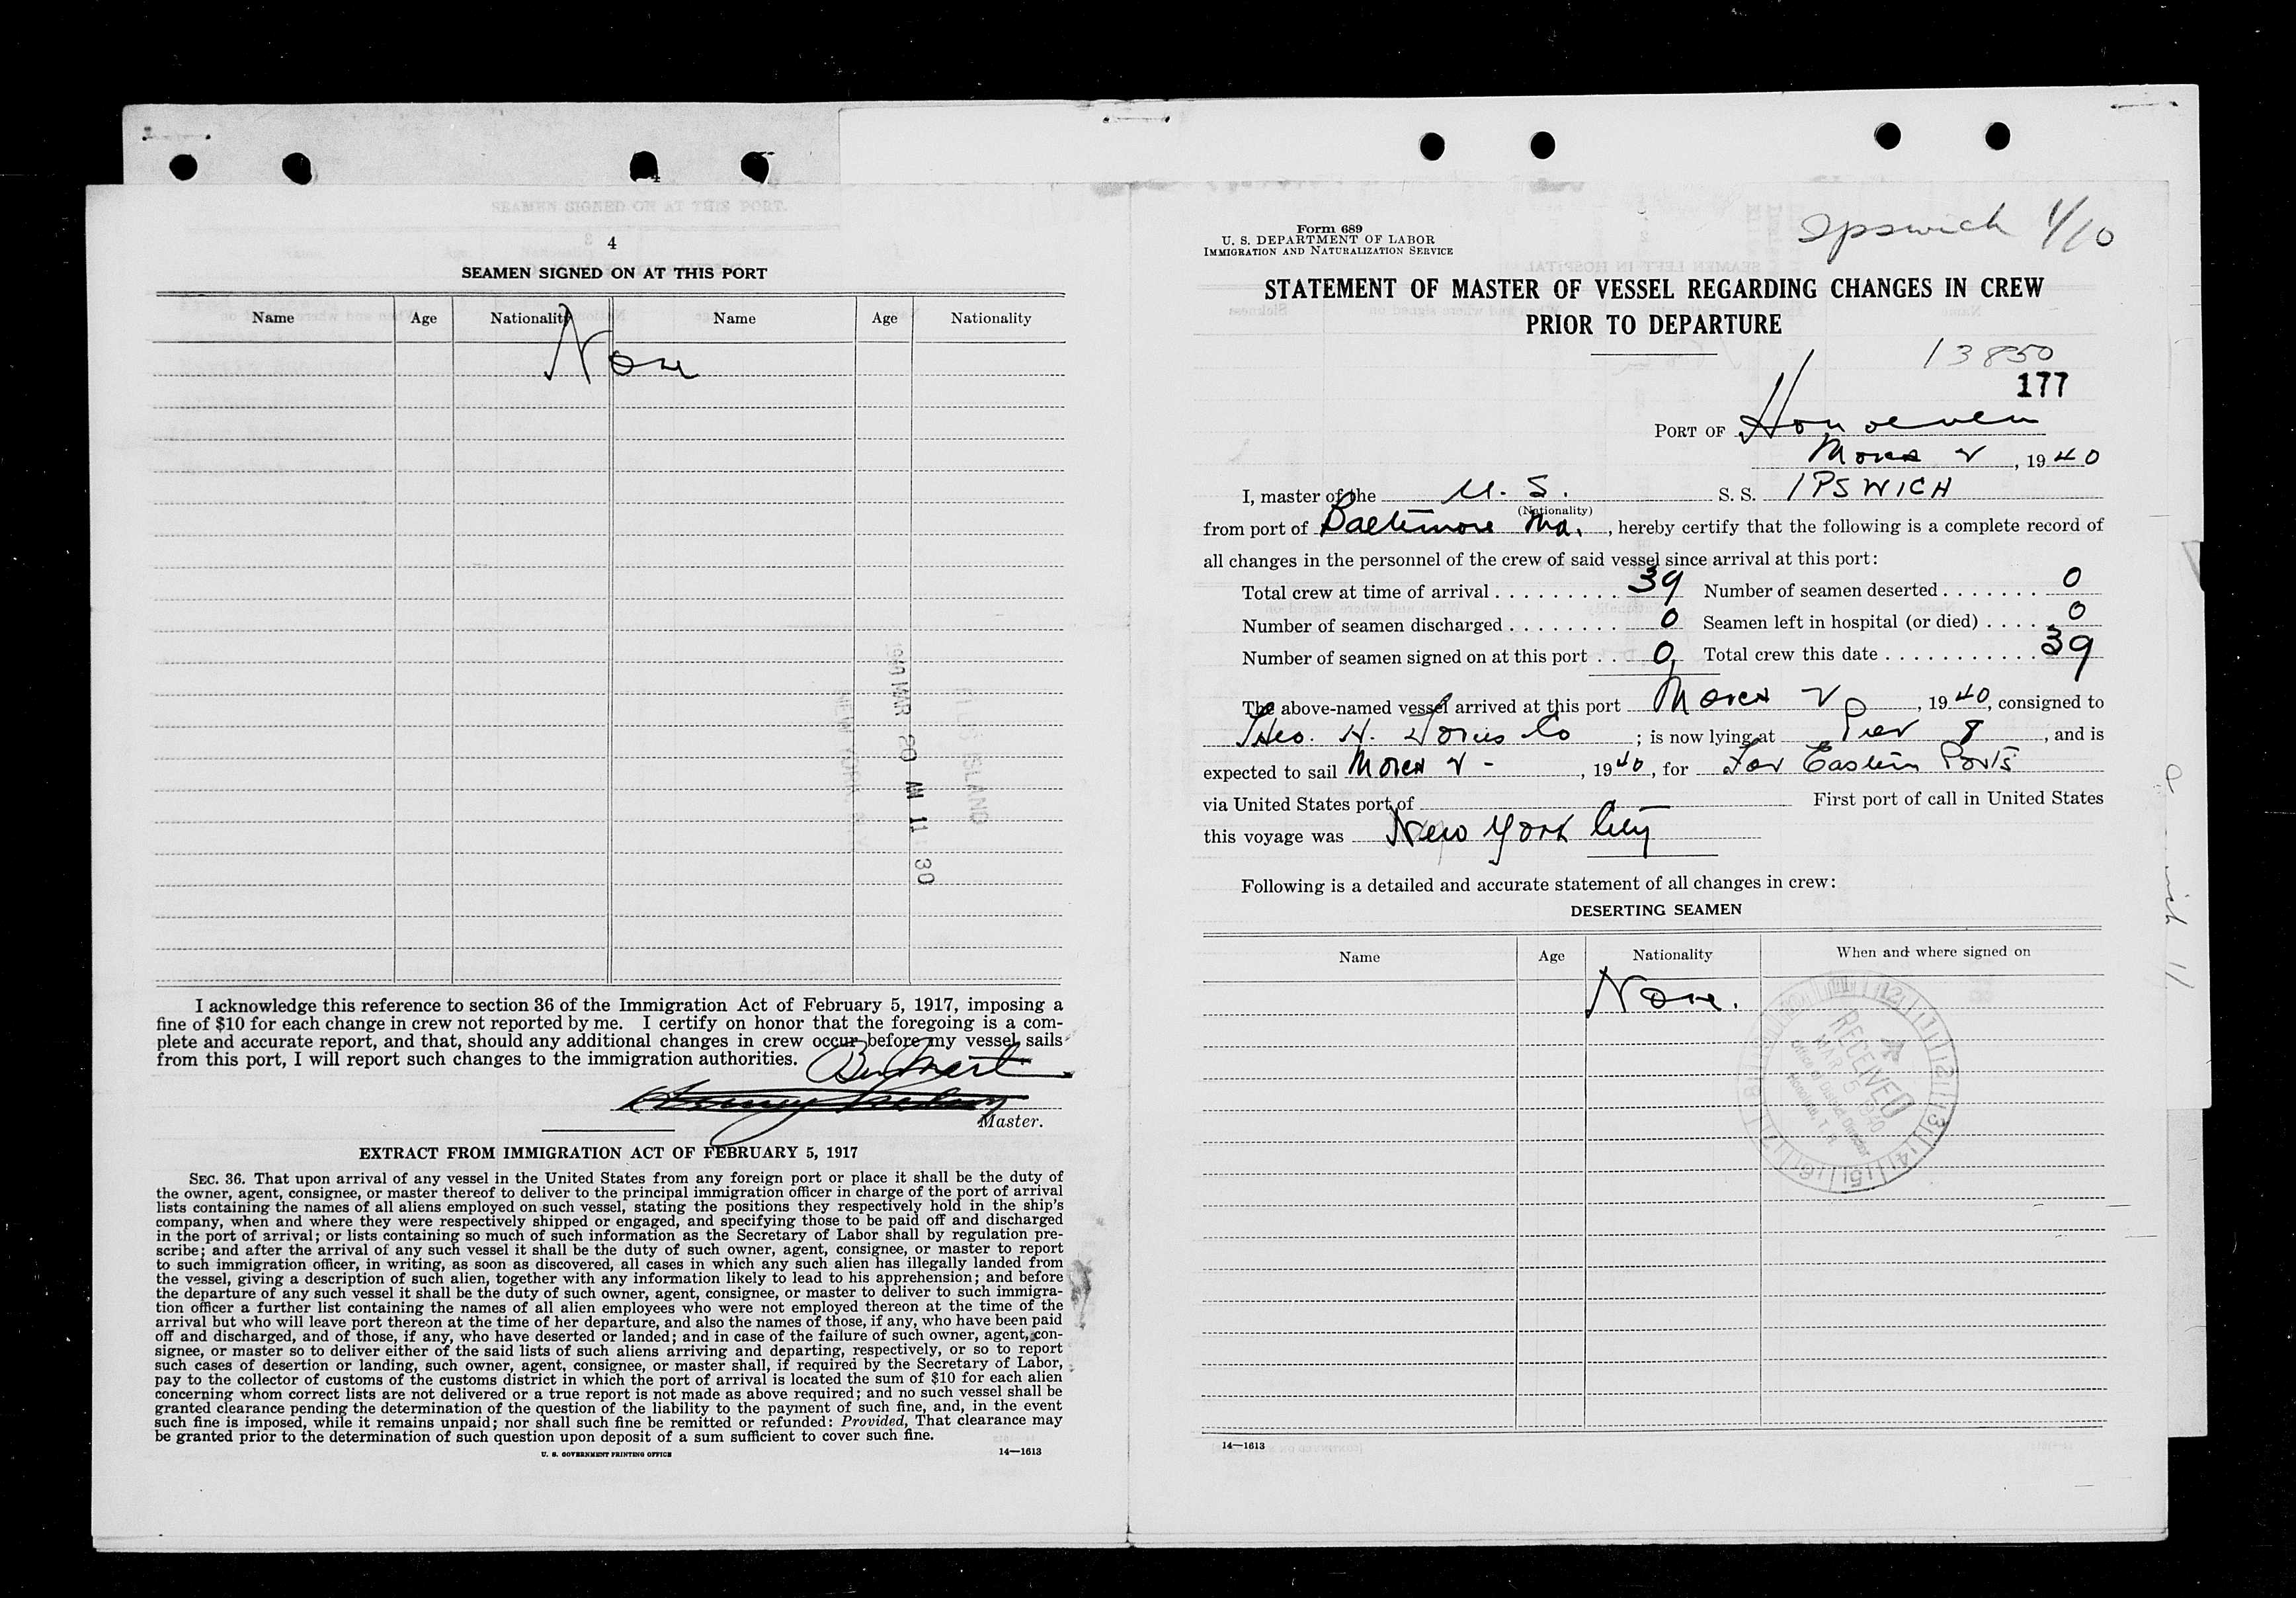 4
SEAMEN SIGNED ON AT THIS PORT
Name Age Nationality Name Age Nationality
None
1940 MAR 20 AM 11 30
I acknowledge this reference to section 36 of the Immigration Act of February 5, 1917, imposing a
fine of $10 for each change in crew not reported by me. I certify on honor that the foregoing is a com-
plete and accurate report, and that, should any additional changes in crew occur before my vessel sails
from this port, I will report such changes to the immigration authorities.
Master.
EXTRACT FROM IMMIGRATION ACT OF FEBRUARY 5, 1917
SEC. 36. That upon arrival of any vessel in the United States from any foreign port or place it shall be the duty of
the owner, agent, consignee, or master thereof to deliver to the principal immigration officer in charge of the port of arrival
lists containing the names of all aliens employed on such vessel, stating the positions they respectively hold in the ship's
company, when and where they were respectively shipped or engaged, and specifying those to be paid off and discharged
in the port of arrival; or lists containing so much of such information as the Secretary of Labor shall by regulation pre-
scribe; and after the arrival of any such vessel it shall be the duty of such owner, agent, consignee, or master to report
to such immigration officer, in writing, as soon as discovered, all cases in which any such alien has illegally landed from
the vessel, giving a description of such alien, together with any information likely to lead to his apprehension; and before
the departure of any such vessel it shall be the duty of such owner, agent, consignee, or master to deliver to such immigra-
tion officer a further list containing the names of all alien employees who were not employed thereon at the time of the
arrival but who will leave port thereon at the time of her departure, and also the names of those, if any, who have been paid
off and discharged, and of those, if any, who have deserted or landed; and in case of the failure of such owner, agent, con-
signee, or master so to deliver either of the said lists of such aliens arriving and departing, respectively, or so to report
such cases of desertion or landing, such owner, agent, consignee, or master shall, if required by the Secretary of Labor,
pay to the collector of customs of the customs district in which the port of arrival is located the sum of $10 for each alien
concerning whom correct lists are not delivered or a true report is not made as above required; and no such vessel shall be
granted clearance pending the determination of the question of the liability to the payment of such fine, and, in the event
such fine is imposed, while it remains unpaid; nor shall such fine be remitted or refunded: Provided, That clearance may
be granted prior to the determination of such question upon deposit of a sum sufficient to cover such fine.
U. S. GOVERNMENT PRINTING OFFICE 14—1613
Ipswich 1/10
Form 689
U. S. DEPARTMENT OF LABOR
IMMIGRATION AND NATURALIZATION SERVICE
STATEMENT OF MASTER OF VESSEL REGARDING CHANGES IN CREW
PRIOR TO DEPARTURE
13850
177
PORT OF
March 2, 1940
I, master of the U. S. S. S. IPSWICH
(Nationality)
from port of Baltimore Md., hereby certify that the following is a complete record of
all changes in the personnel of the crew of said vessel since arrival at this port:
Total crew at time of arrival 39 Number of seamen deserted 0
Number of seamen discharged 0 Seamen left in hospital (or died) 0
Number of seamen signed on at this port 0 Total crew this date 39
The above-named vessel arrived at this port March 2, 1940, consigned to
Theo. H. Davies Co; is now lying at Pier 8, and is
expected to sail March 2 -, 1940, for Far Eastern Ports
via United States port of First port of call in United States
this voyage was New York City
Following is a detailed and accurate statement of all changes in crew:
DESERTING SEAMEN
Name Age Nationality When and where signed on
None.
RECEIVED
MAR 5 1940
Office of District Director
Honolulu, T. H.
14—1613